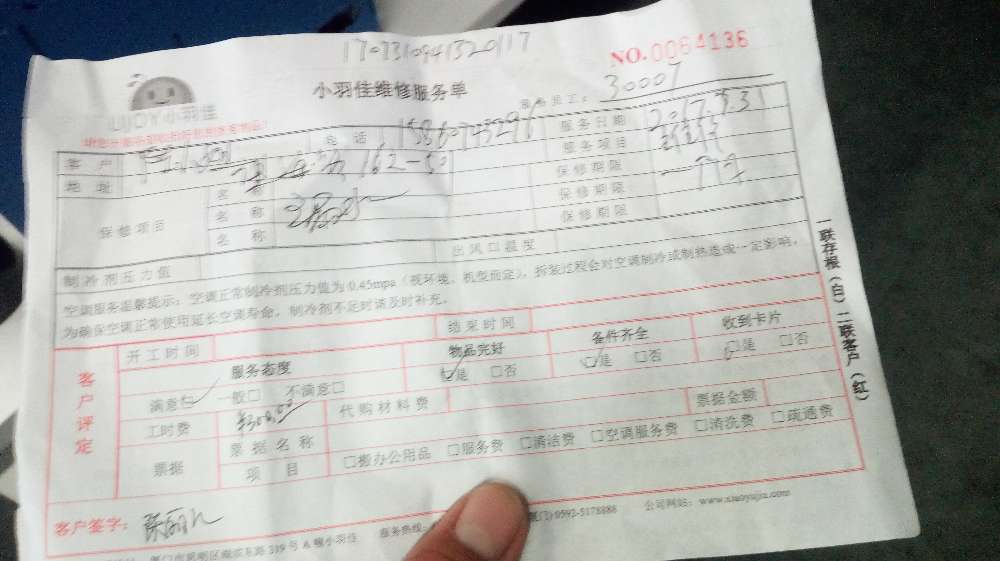 1707310941320117
NO.0064136
小羽佳维修服务单
UJOY小羽佳
服务员工：30007
客户
电话
服务日期 2017.7.31
地址 162-50
服务项目
保修项目
名称
保修期限
名称
保修期限
名称
保修期限
制冷剂压力值
出风口温度
空调服务温馨提示：空调正常制冷剂压力值为0.45mpa（视环境、机型而定），拆装过程会对空调制冷或制热造成一定影响，
为确保空调正常使用延长空调寿命，制冷剂不足时请及时补充。
客户评定
开工时间
结束时间
服务态度
物品完好
备件齐全
收到卡片
满意□ 一般□ 不满意□
□是 □否
□是 □否
□是 □否
工时费 ¥300.00
代购材料费
票据金额
票据
票据名称
项目
□搬办公用品 □服务费 □清洁费 □空调服务费 □清洗费 □疏通费
客户签字：
服务热线：
0592-5178888
公司网站：www.xiaoyujia.com
319号A幢小羽佳
一联存根（白）二联客户（红）